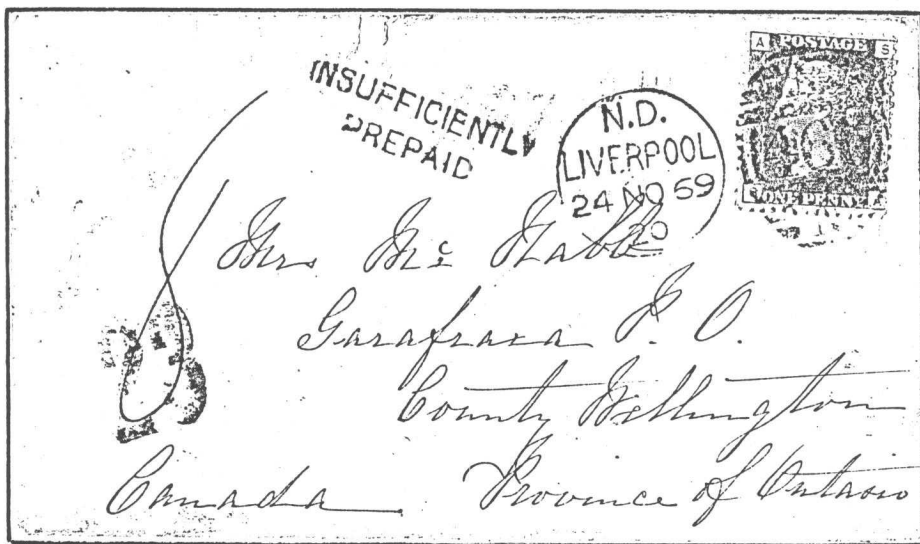 INSUFFICIENTLY
PREPAID
N.D.
LIVERPOOL
24 NO 69
20
A POSTAGE S
ONE PENNY
Mrs Mc Nabb
Garafraxa P. O.
County Wellington
Canada Province of Ontario